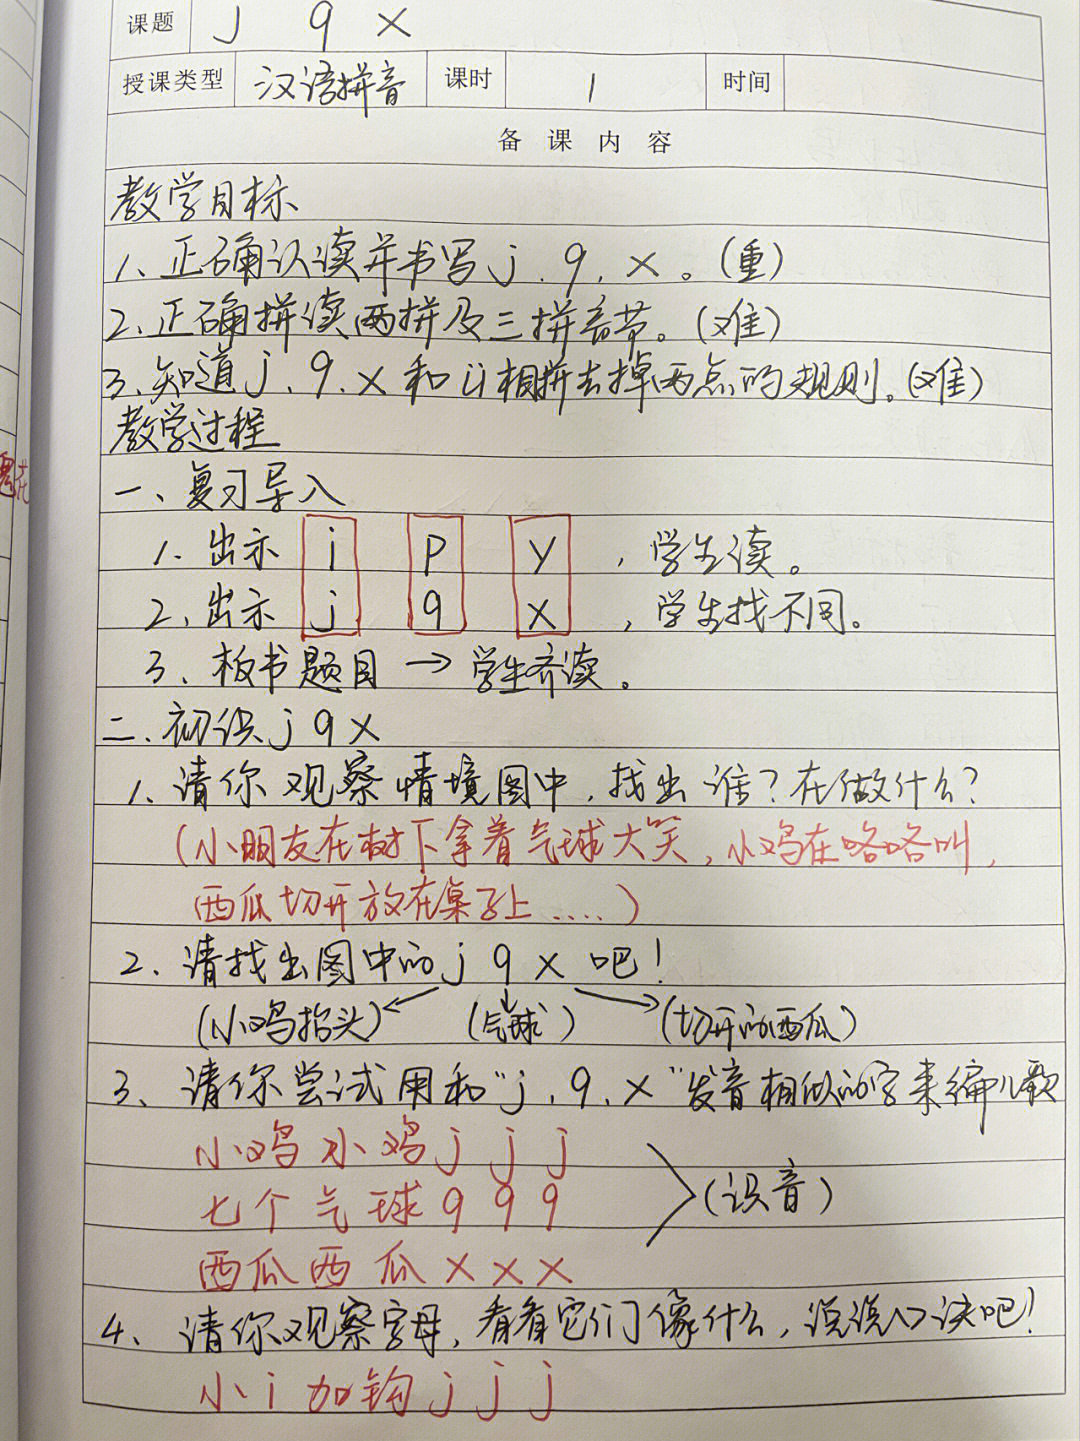 课题 j q x
授课类型 汉语拼音 课时 1 时间
备课内容
教学目标
1、正确认读并书写j、q、x。(重)
2、正确拼读两拼及三拼音节。(难)
3、知道j、q、x和ü相拼去掉两点的规则。(难)
教学过程
一、复习导入
1、出示 i p y ,学生读。
2、出示 j q x ,学生找不同。
3、板书题目→学生齐读。
二、初识j q x
1、请你观察情境图中,找出谁?在做什么?
(小朋友在树下拿着气球大笑,小鸡在咯咯叫,
西瓜切开放在桌子上……)
2、请找出图中的j q x吧!
(小鸡抬头) (气球) (切开的西瓜)
3、请你尝试用和“j、q、x”发音相似的字来编儿歌
小鸡小鸡j j j
七个气球q q q
(识音)
西瓜西瓜x x x
4、请你观察字母,看看它们像什么,说说口诀吧!
小i加钩j j j